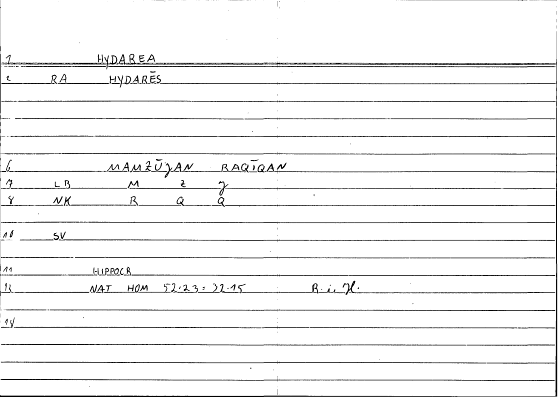 1 HYDAREA
2 RA HYDARĒS
6 MAMZŪJAN RAQĪQAN
7 LB M Z J
8 NK R Q Q
10 SV
11 HIPPOCR
12 NAT HOM 52.23 = 32.15 R. i. H.
14